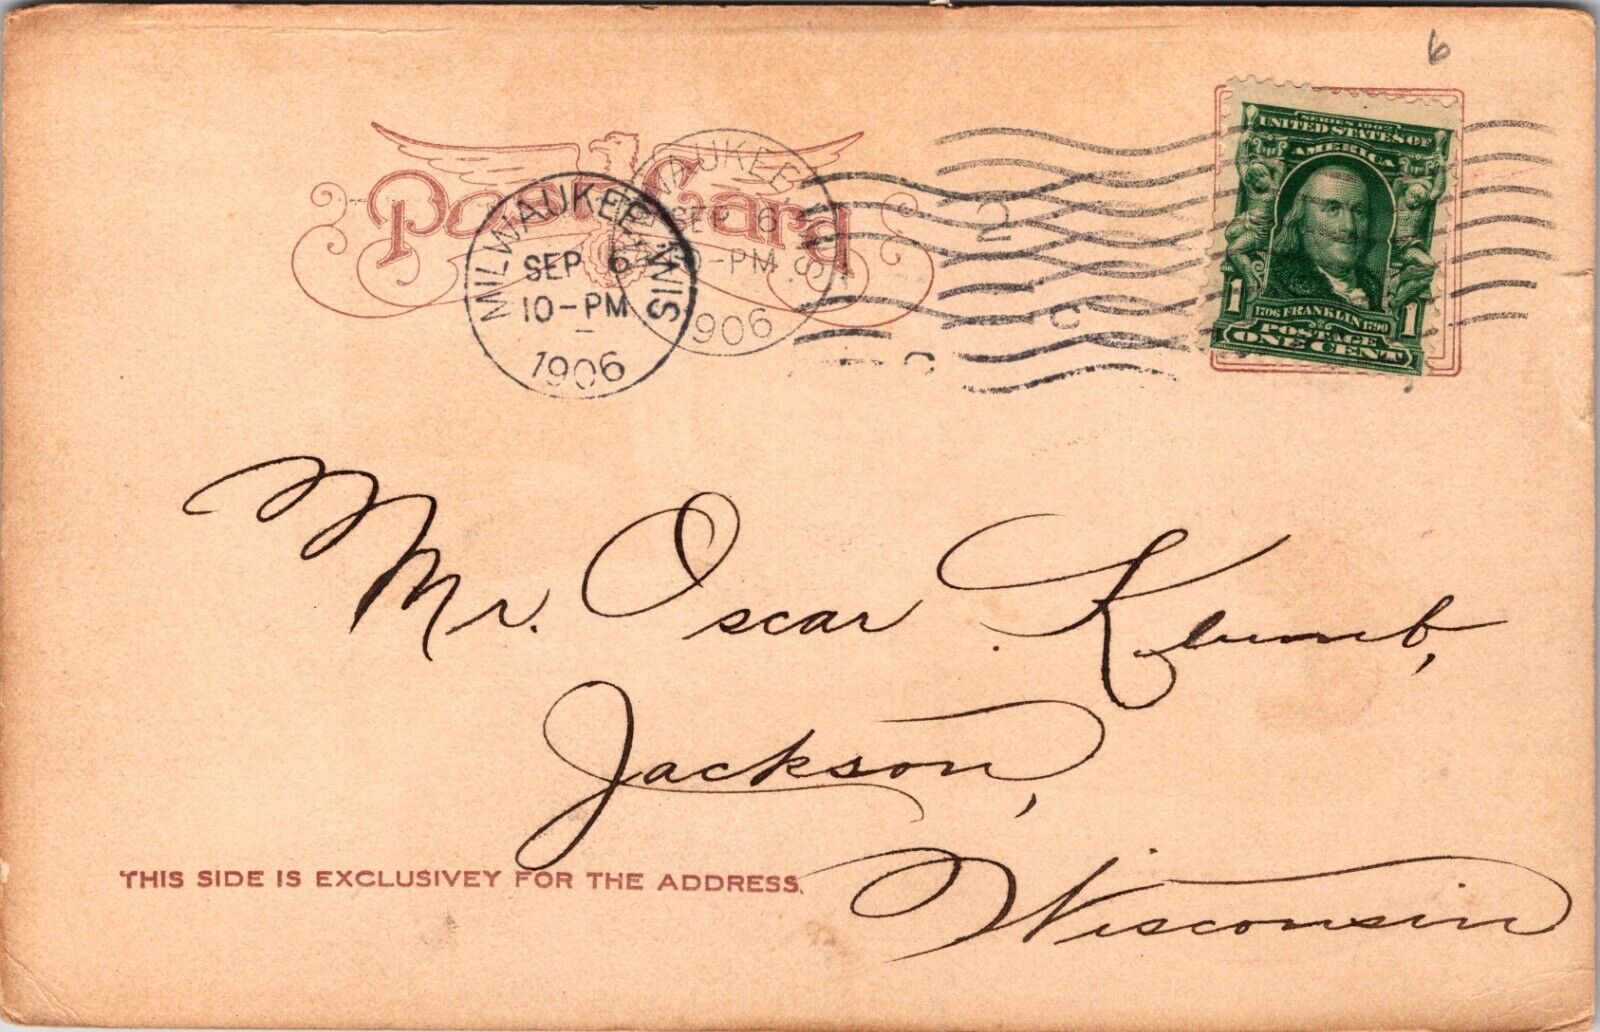 6
Post Card
MILWAUKEE, WIS.
SEP 6
10-PM
1906
MILWAUKEE, WIS.
SEP 6
10-PM
1906
2
C
C
SERIES 1902
UNITED STATES OF
AMERICA
1706 FRANKLIN 1790
1 1
POSTAGE
ONE CENT
Mr. Oscar Klumb,
Jackson,
Wisconsin
THIS SIDE IS EXCLUSIVEY FOR THE ADDRESS.